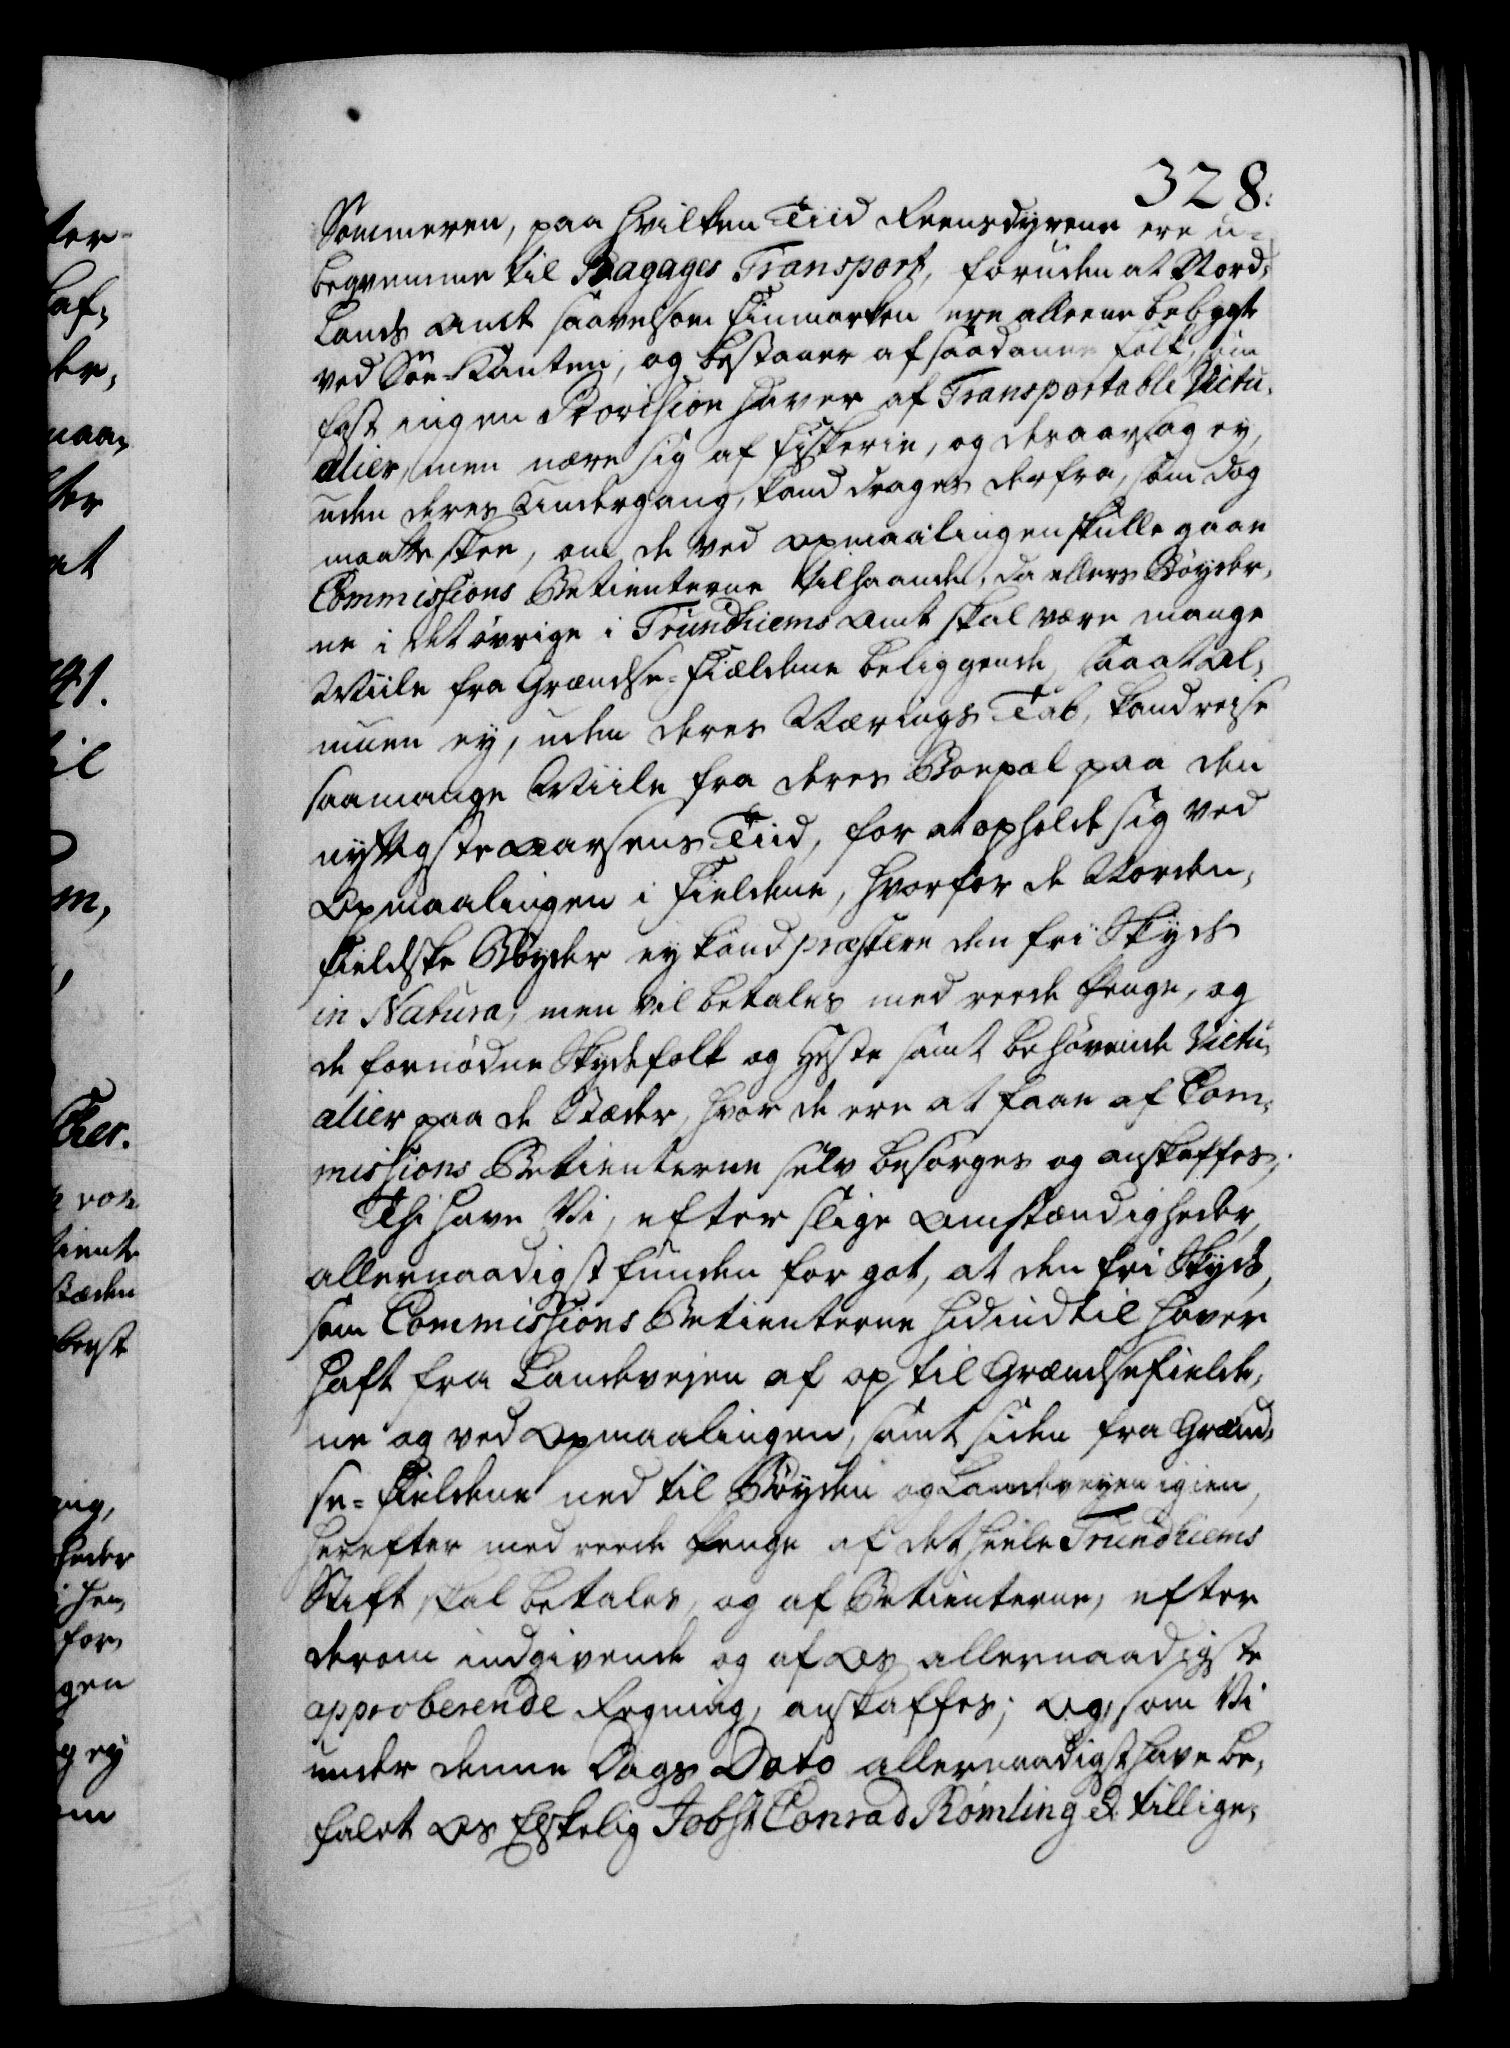 328.
Sommeren, paa hvilken Tiid Reensdyrene ere u-
beqvemme til Bagages Transport, foruden at Nord-
Lands Amt saavelsom Finmarken ere alleene bebygt
ved Søe-Kanten, og bestaaer af saadanne Folk, som
fast ingen Provision haver af Transportable Victu-
alier, men nære sig af Fiskerie, og deraarsag ey,
uden deres Undergang, kand drages derfra, som dog
maatte skee, om de ved Opmaalingen skulle gaae
Commissions Betienterne tilhaande, da ellers Bøyder-
ne i det øvrige i Trundhiems Amt skal være mange
Miile fra Grændse-Fieldene beliggende, saa at Al-
muen ey, uden deres Nærings Tab, kand reise
saamange Miile fra deres Boepæl paa den
nyttigste Aarsens Tiid, for at opholde sig ved
Opmaalingen i Fieldene, hvorfor de Norden-
fieldske Bøyder ey kand præstere den fri Skyds
in Natura, men vil betales med reede Penge, og
de fornødne Skydsfolk og Heste samt behøvende Victu-
alier paa de Stæder, hvor de ere at faae af Com-
missions Betienterne selv besørges og anskaffes;
Thi have Vi, efter slige Omstændigheder,
allernaadigst funden for got, at den fri Skyds,
som Commissions Betienterne hidindtil haver
haft fra Landevejen af op til Grændsefielde-
ne og ved Opmaalingen, samt siden fra Grænd-
se-Fieldene ned til Bøyden og Landevejen igien,
herefter med reede Penge af det heele Trundhiems
Stift skal betales, og af Betienterne, efter
derom indgivende og af Os allernaadigste
approberende Regning, anskaffes; Og, som Vi
under denne Dags Dato allernaadigst have be-
falet Os Elskelig Jobst Conrad Rømling &c tillige-